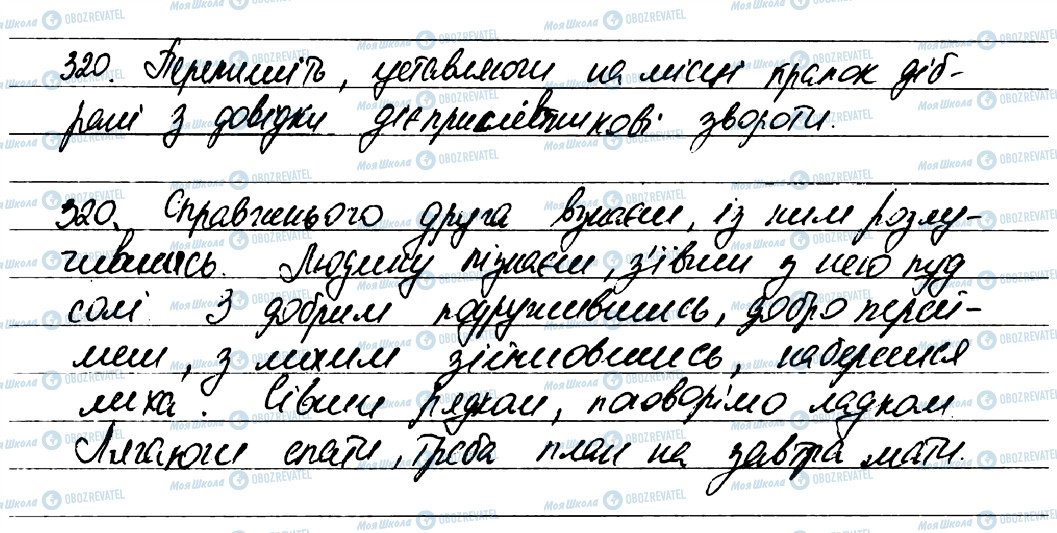 320 Перепишіть, уставляючи на місці крапок діб-
рані з довідки дієприслівникові звороти.
320. Справжнього друга взнаєш, із ним розлу-
чившись. Людину пізнаєш, з'ївши з нею пуд
солі. З добрим подружившись, добро перей-
меш, з лихим зійшовшись, наберешся
лиха. Сівши рядком, поговорімо ладком.
Лягаючи спати, треба план на завтра мати.